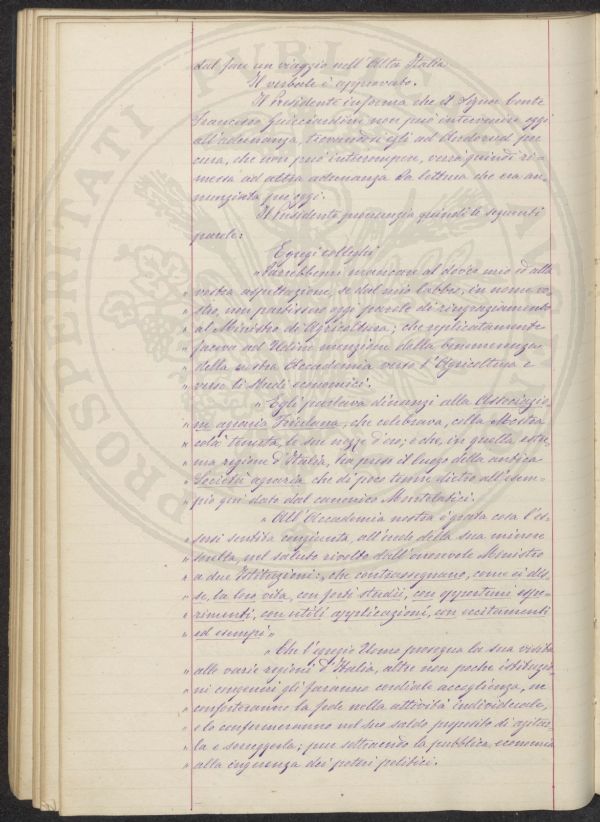 dal fare un viaggio nell'Alta Italia.
Il verbale è approvato.
Il Presidente informa che il Signor Conte
Francesco Guicciardini non può intervenire oggi
all'adunanza, trovandosi egli ad
cura, che non può interrompere, verrà quindi ri-
messa ad altra adunanza la lettura che era an-
nunziata per oggi.
Il Presidente pronunzia quindi le seguenti
parole:
Egregi colleghi
"Parrebbemi mancare al dover mio ed alla
" vostra aspettazione, se dal mio labbro, in nome vo-
" stro, non partissero oggi parole di ringraziamento
" al Ministro di Agricoltura; che replicatamente
" faceva ad Udine menzione delle benemerenze
" della nostra Accademia verso l'Agricoltura e
" verso li studi economici.
" Egli parlava dinanzi alla Associazio-
" ne agraria Friulana, che celebrava, colla Mostra
" colà tenuta, le sue nozze d'oro; e che, in quella estre-
" ma regione d'Italia, ha preso il luogo della antica
" Società agraria che di poco tenne dietro all'esem-
" pio qui dato dal canonico Montelatici.
" All'Accademia nostra è grata cosa l'es-
" sersi sentita congiunta, all'erede della sua minore
" sorella, nel saluto rivolto dall'onorevole Ministro
" a due Istituzioni: che contrassegnano, come ei dis-
" se, la loro vita, con forti studii, con opportuni espe-
" rimenti, con utili applicazioni, con eccitamenti
" ed esempi "
" Che l'egregio Uomo prosegua la sua visita
" alle varie regioni d'Italia, altre non poche istituzio-
" ni congeneri gli faranno cordiale accoglienza, ne
" conforteranno la fede nella attività individuale,
" e lo confermeranno nel suo saldo proposito di ajutar-
" la e sorreggerla; pur sottraendo la pubblica economia
" alla ingerenza dei poteri politici.
PROSPERITATI PUBLICAE AUGENDAE